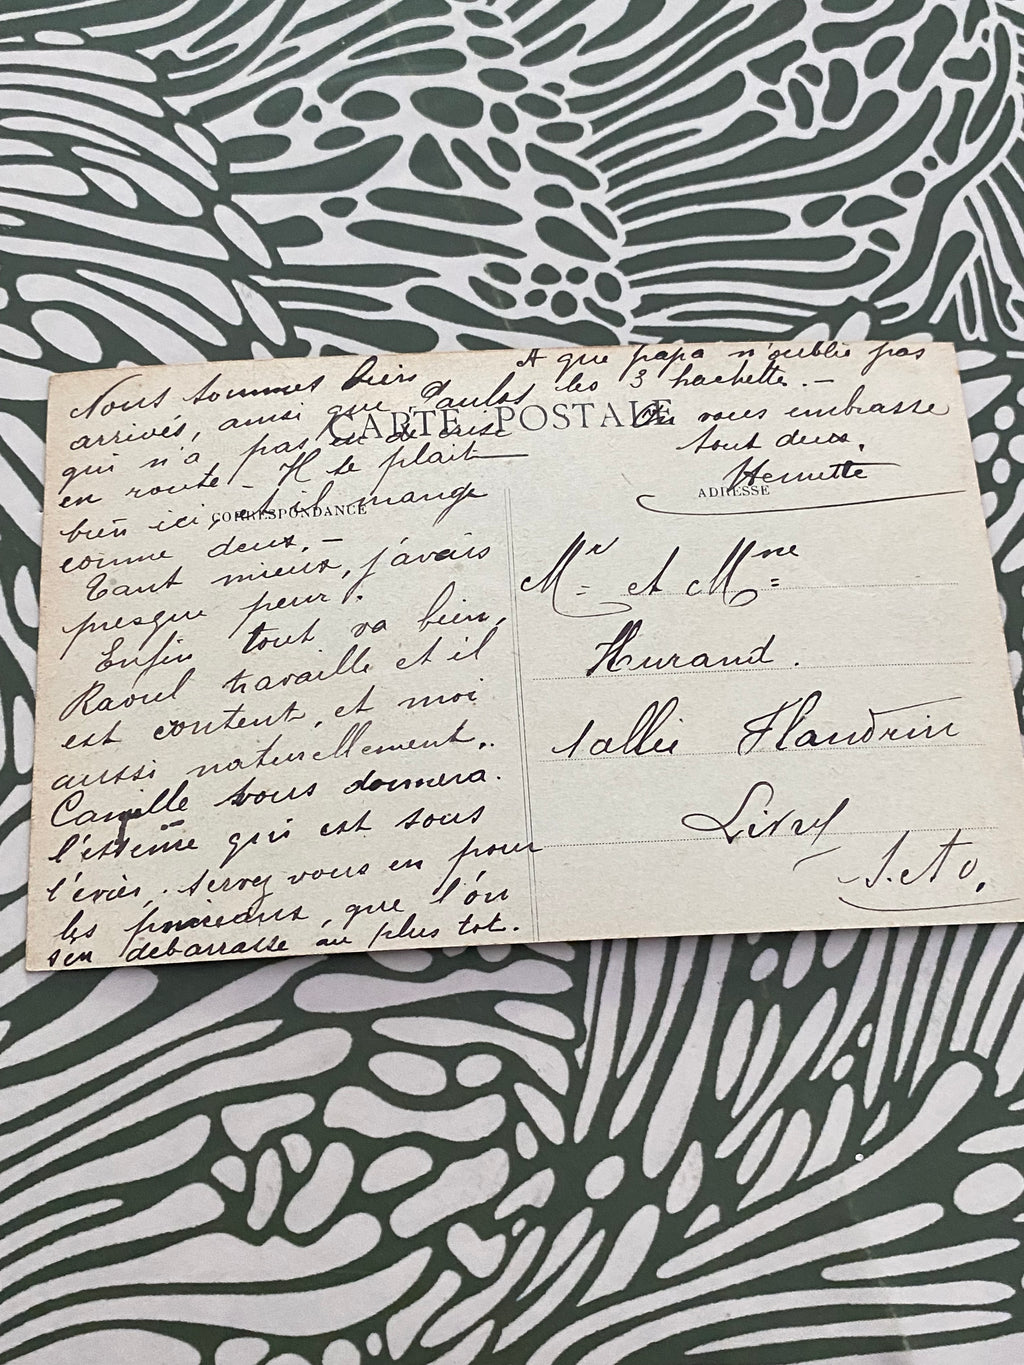 Nous sommes bien
arrivés, ainsi que
qui n'a pas eu de crise
en route - Il se plait
bien ici, et il mange
comme deux. -
Tant mieux, j'avais
presque peur.
Enfin tout va bien,
Raoul travaille et il
est content, et moi
aussi naturellement..
Camille vous donnera
qui est sous
l'évier. servez vous en pour
les que l'on
s'en débarrasse au plus tot.
A que papa n'oublie pas
les 3 hachette. -
On vous embrasse
tout deux.
CARTE POSTALE
CORRESPONDANCE
ADRESSE
Mr et Mme
Hurand.
allée Flandrin
Livry
S. et O.